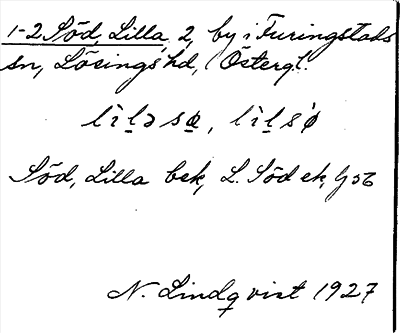 1-2 Söd, Lilla, 2, by i Furingstads
sn, Lösings hd, Östergl.
lìlə sœ, lìlsø̀
Söd, Lilla bek, L. Söd ek, Gsb
N. Lindqvist 1927